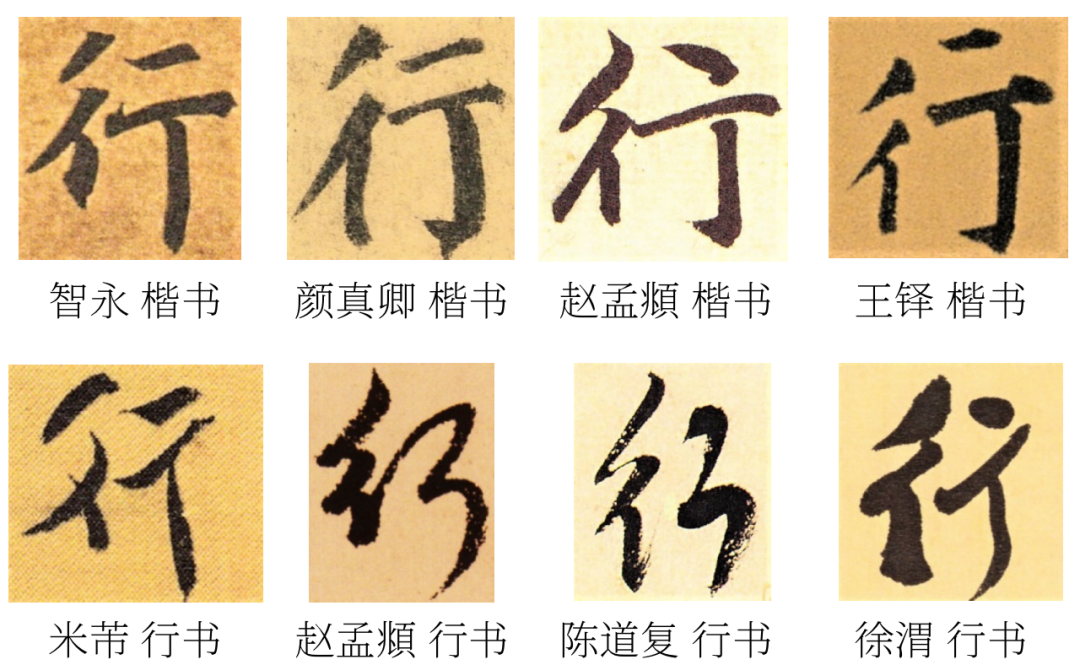 行 行 行 行
智永 楷书 颜真卿 楷书 赵孟頫 楷书 王铎 楷书
行 行 行 行
米芾 行书 赵孟頫 行书 陈道复 行书 徐渭 行书